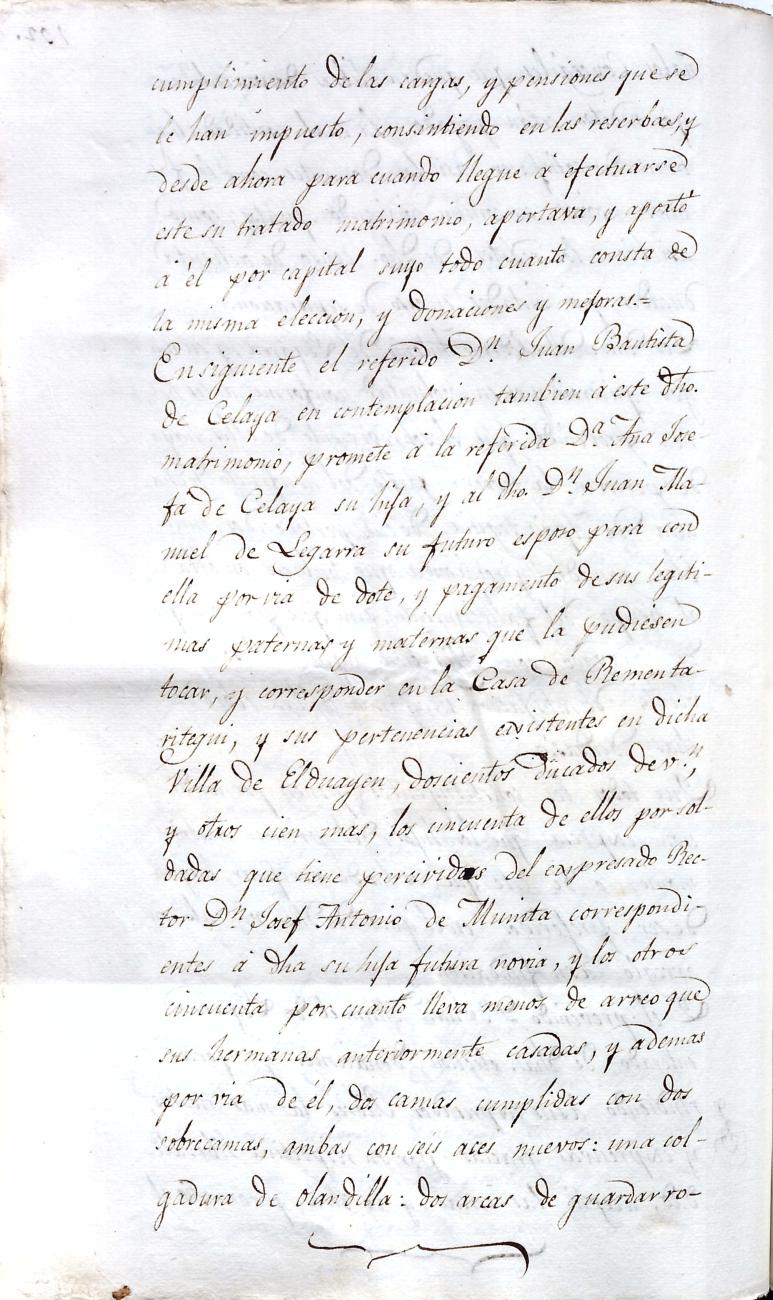 cumplimiento de las cargas, y pensiones que se
le han impuesto, consintiendo en las reserbas, y
desde ahora para cuando llegue á efectuarse
este su tratado matrimonio, aportava, y aportó
á él por capital suyo todo cuanto consta de
la misma eleccion, y donaciones y mejoras.=
En siguiente el referido Dn. Juan Bautista
de Celaya en contemplacion tambien á este dho.
matrimonio, promete á la referida Da. Ana Jose-
fa de Celaya su hija, y al dho. Dn. Juan Ma-
nuel de Legarra su futuro esposo para con
ella por via de dote, y pagamento de sus legiti-
mas paternas y maternas que la pudiesen
tocar, y corresponder en la Casa de Rementa-
ritegui, y sus pertenencias existentes en dicha
Villa de Elduayen, doscientos ducados de v.n,
y otros cien mas, los cincuenta de ellos por sol-
dadas que tiene percividas del expresado Rec-
tor Dn. Josef Antonio de Munita correspondi-
entes á dha su hija futura novia, y los otros
cincuenta por cuanto lleva menos de arreo que
sus hermanas anteriormente casadas, y ademas
por via de él, dos camas cumplidas con dos
sobrecamas, ambas con seis aces nuevos: una col-
gadura de olandilla: dos arcas de guardar ro-